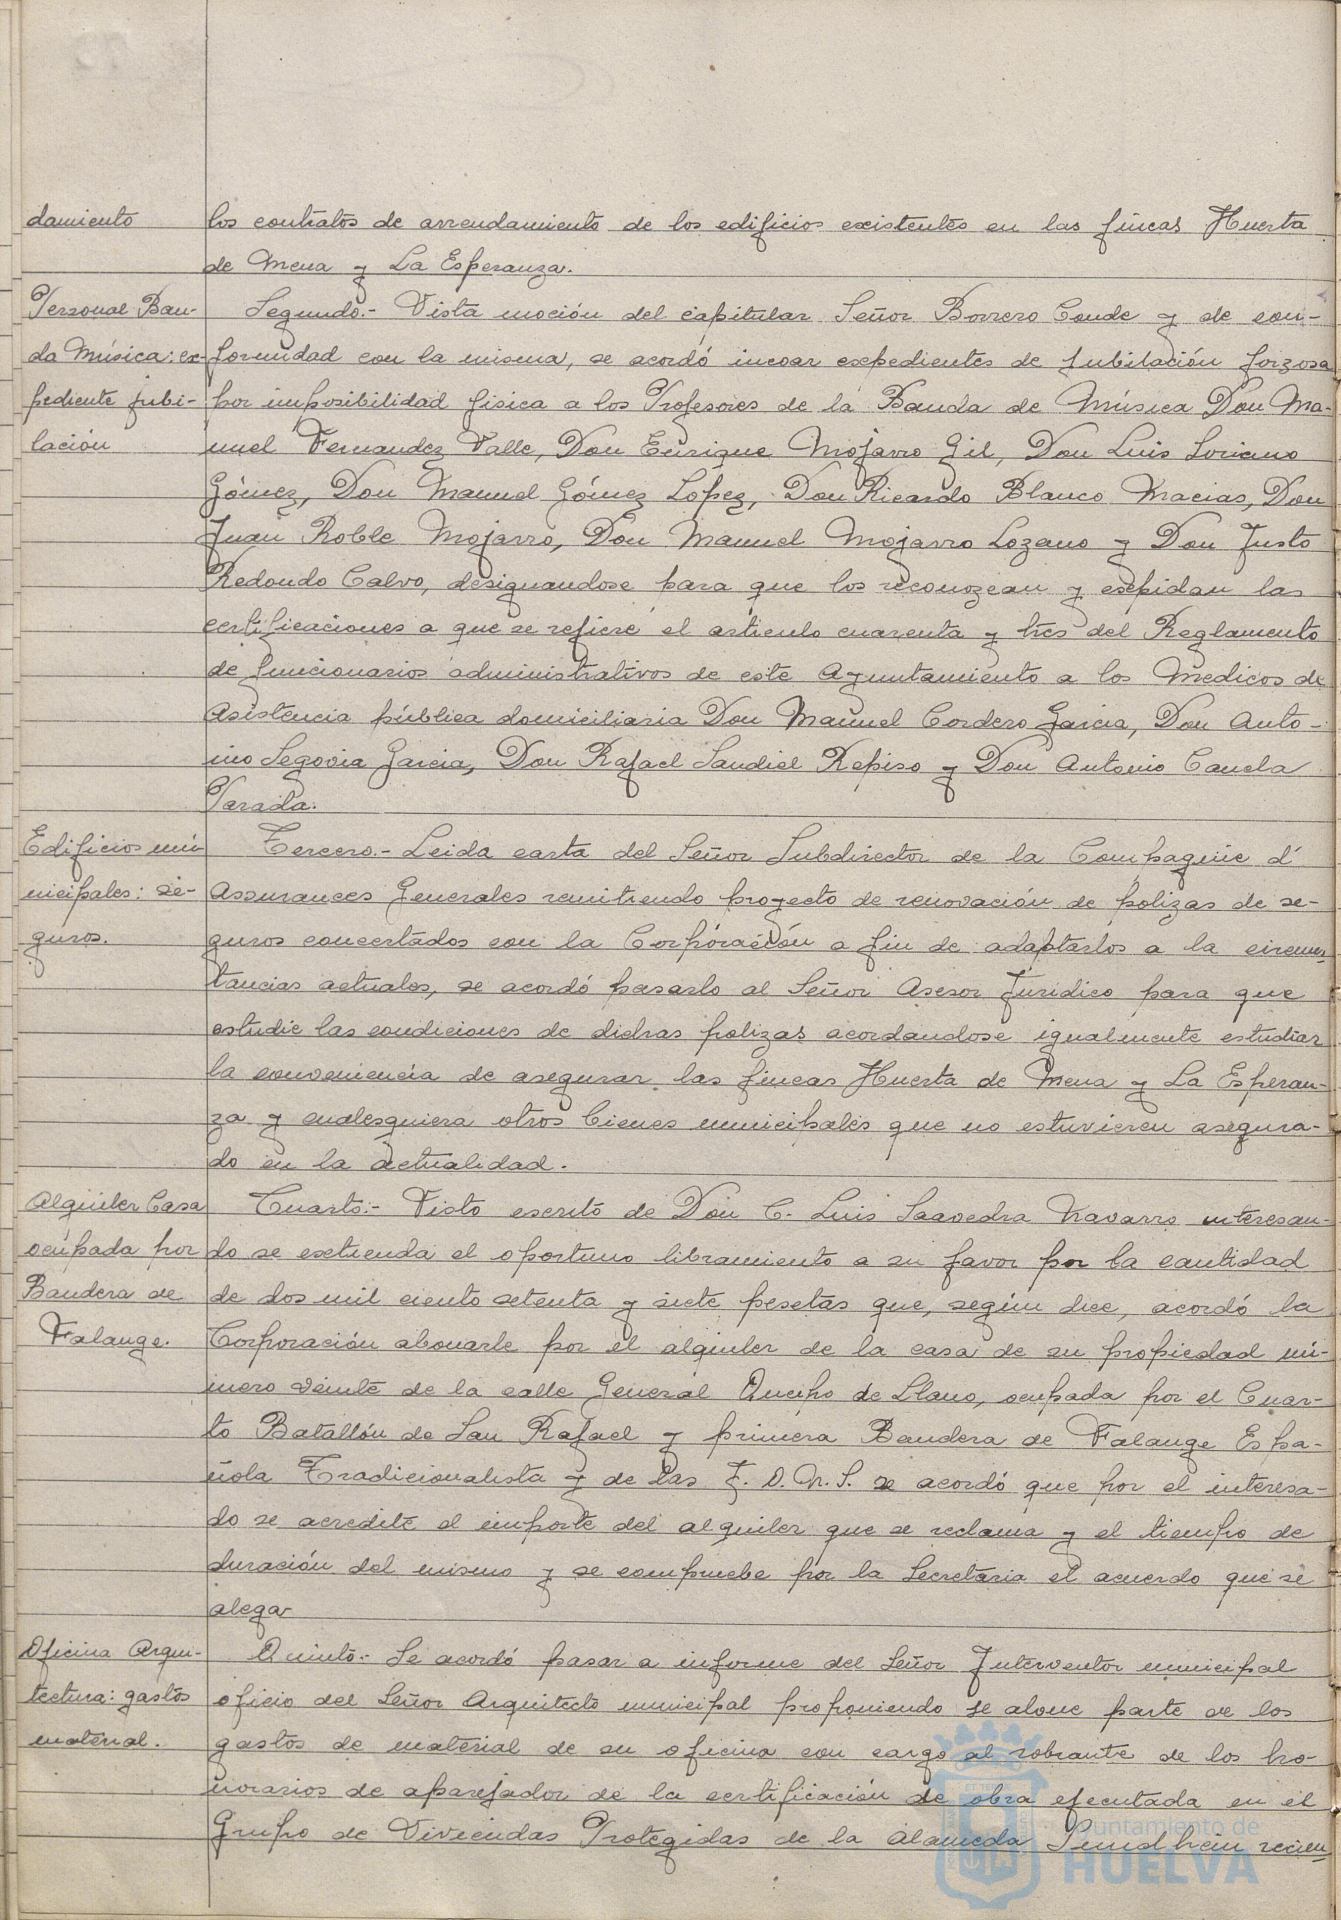 damiento
los contratos de arrendamiento de los edificios existentes en las fincas Huerta
de Mena y La Esperanza.
Personal Ban-
da Música: ex-
pediente jubi-
lación
Segundo.- Vista moción del capitular Señor Borrero Conde y de con-
formidad con la misma, se acordó incoar expedientes de jubilación forzosa
por imposibilidad fisica a los Profesores de la Banda de Música Don Ma-
nuel Fernandez Valle, Don Enrique Mojarro Gil, Don Luis Soriano
Gómez, Don Manuel Gómez López, Don Ricardo Blanco Macias, Don
Juan Roble Mojarro, Don Manuel Mojarro Lozano y Don Justo
Redondo Calvo, designandose para que los reconozcan y expidan las
certificaciones a que se refiere el artículo cuarenta y tres del Reglamento
de funcionarios administrativos de este Ayuntamiento a los Medicos de
Asistencia pública domiciliaria Don Manuel Cordero Garcia, Don Anto-
nio Segovia Garcia, Don Rafael Sandiel Repiso y Don Antonio Canela
Parada.
Edificios mu-
nicipales: se-
guros.
Tercero.- Leida carta del Señor Subdirector de la Compagnie d'
Assurances Generales remitiendo proyecto de renovación de polizas de se-
guros concertados con la Corporación a fin de adaptarlos a la circuns-
tancias actuales, se acordó pasarlo al Señor Asesor Jurídico para que
estudie las condiciones de dichas polizas acordandose igualmente estudiar
la conveniencia de asegurar las fincas Huerta de Mena y La Esperan-
za y cualesquiera otros bienes municipales que no estuvieren asegura-
do en la actualidad.
Alquiler Casa
ocupada por
Bandera de
Falange.
Cuarto.- Visto escrito de Don C. Luis Saavedra Navarro interesan-
do se extienda el oportuno libramiento a su favor por la cantidad
de dos mil ciento setenta y siete pesetas que, según dice, acordó la
Corporación abonarle por el alquiler de la casa de su propiedad nú-
mero veinte de la calle General Queipo de Llano, ocupada por el Cuar-
to Batallón de San Rafael y primera Bandera de Falange Espa-
ñola Tradicionalista y de las J.O.N.S. se acordó que por el interesa-
do se acredite el importe del alquiler que se reclama y el tiempo de
duración del mismo y se compruebe por la Secretaria el acuerdo que se
alega
Oficina Arqui-
tectura: gastos
material.
Quinto.- Se acordó pasar a informe del Señor Interventor municipal
oficio del Señor Arquitecto municipal proponiendo se abone parte de los
gastos de material de su oficina con cargo al sobrante de los ho-
norarios de aparejador de la certificación de obra ejecutada en el
Grupo de Viviendas Protegidas de la Alameda Sundheim recien-
Ayuntamiento de
HUELVA